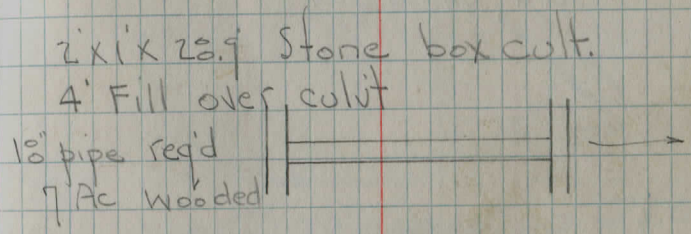 2'x1'x28.9 Stone box cult.
4' Fill over culvt
18" pipe req'd
7 Ac wooded